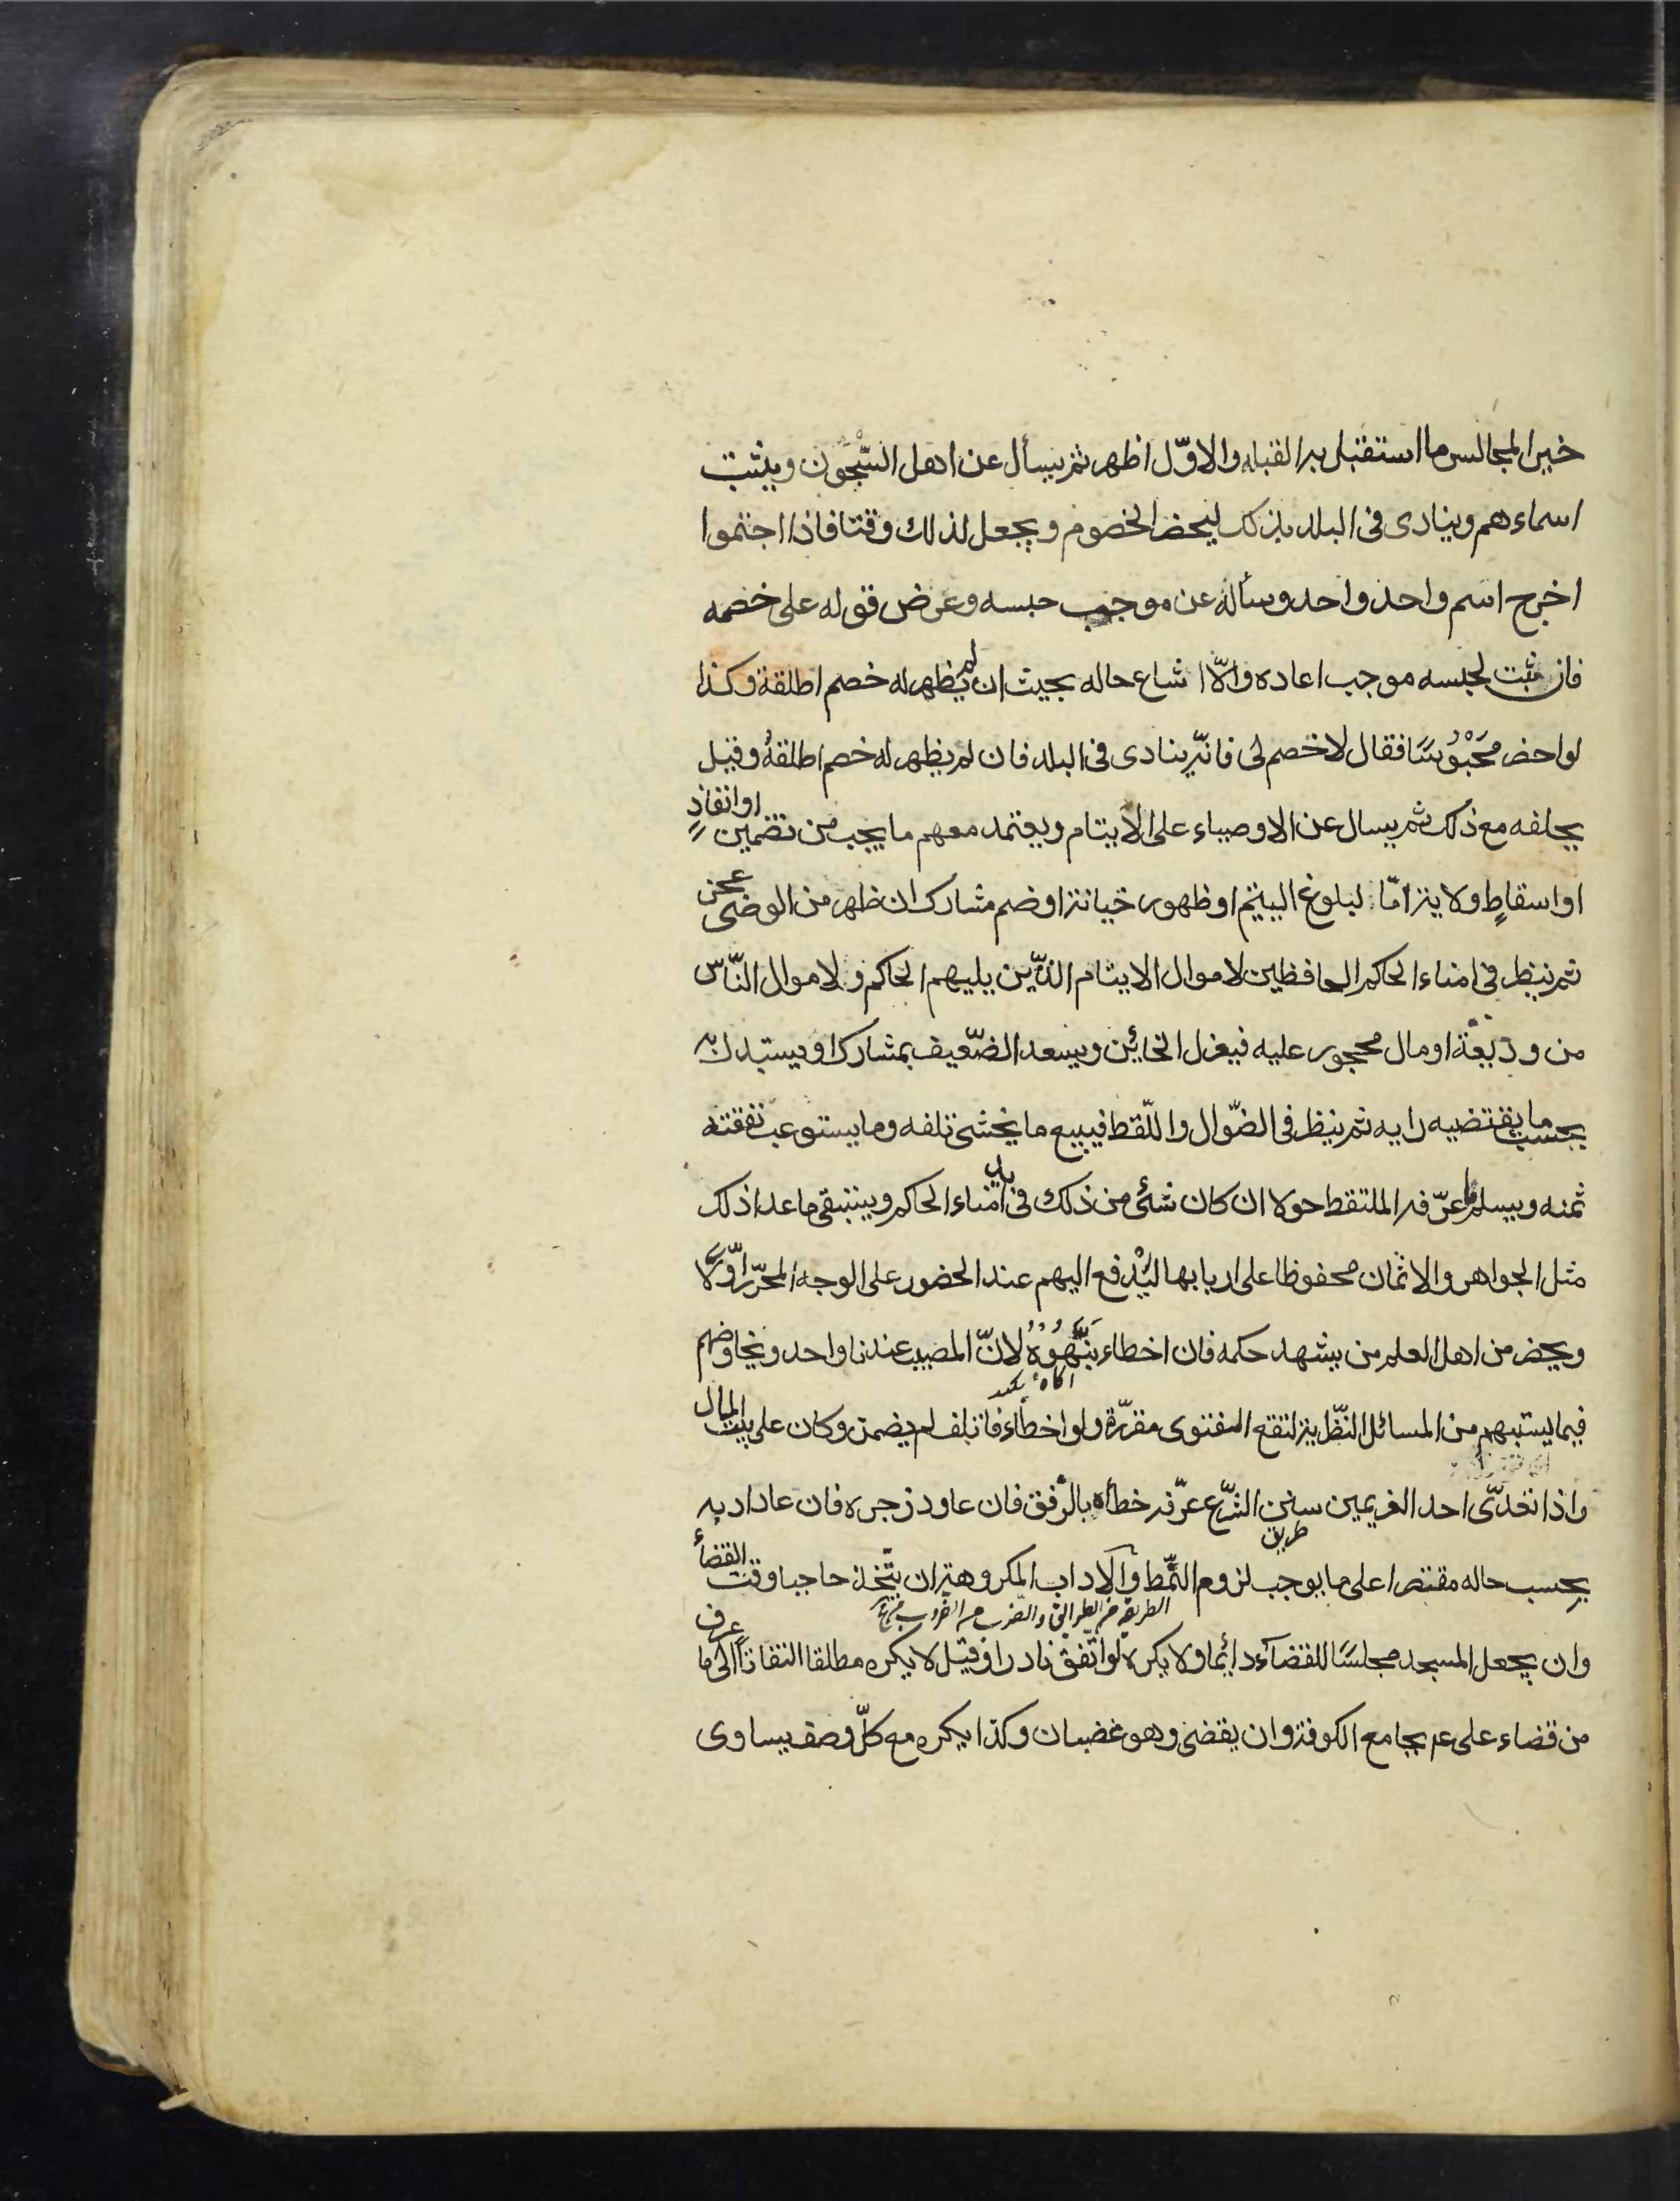 خير المجالس ما استقبل به القبله والاوّل اظهر ثم يسأل عن اهل السّجون ويثبت
اسماءهم وينادى فى البلد بذلك ليحضر الخصوم ويجعل لذلك وقتا فاذا اجتمعوا
اخرج اسم واحد واحد وسأله عن موجب حبسه وعرض قوله على خصمه
فان ثبت لحبسه موجب اعاده والّا اشاع حاله بحيث ان لم يظهر له خصم اطلقه وكذا
لو احضر محبوسًا فقال لا خصم لى فانّه ينادى فى البلد فان لم يظهر له خصم اطلقهُ وقيل
يحلفه مع ذلك ثم يسال عن الاوصياء على الايتام ويعتمد معهم ما يجب من تضمين او انفاذٍ
او اسقاطٍ ولاية امّا لبلوغ اليتيم او ظهور خيانة او ضم مشارك ان ظهر من الوصى عجز
ثم ينظر فى امناء الحاكم الحافظين لاموال الايتام الذّين يليهم الحاكم ولاموال النّاس
من وديعة او مال محجور عليه فيعزل الخائن ويسعد الضّعيف بمشارك او يستبدل به
بحسب ما يقتضيه رايه ثم ينظر فى الضّوال واللّقط فيبيع ما يخشى تلفه وما يستوعب نفقته
ثمنه ويسلم ما عرّفه الملتقط حولا ان كان شئ من ذلك فى يد امناء الحاكم ويستبقى ما عدا ذلك
مثل الجواهر والاثمان محفوظا على اربابها ليُدفع اليهم عند الحضور على الوجه المحرّر اوّلًا
ويحضر من اهل العلم من يشهد حكمه فان اخطاء ينبّهوهُ لانّ المصيب عندنا واحد ويخاوضهم
فيما يستبهم من المسائل النظّرية لتقع الفتوى مقرّرة ولو اخطاء فاتلف لم يضمن وكان على بيت المال
واذا تعدّى احد الغريمين سنن الشّرع عرّفه خطأه بالرّفق فان عاود زجره فان عاد ادبه
طريق
بحسب حاله مقتصرا على ما يوجب لزوم النّمط والآداب المكروهة ان يتّخذ حاجبا وقت القضاء
وان يجعل المسجد مجلسًا للقضاء دائما ولا يكره لو اتّفق نادرا وقيل لا يكره مطلقا التفاتًا الى ما عرف
من قضاء على عم بجامع الكوفة وان يقضى وهو غضبان وكذا يكره مع كلّ وصف يساوى